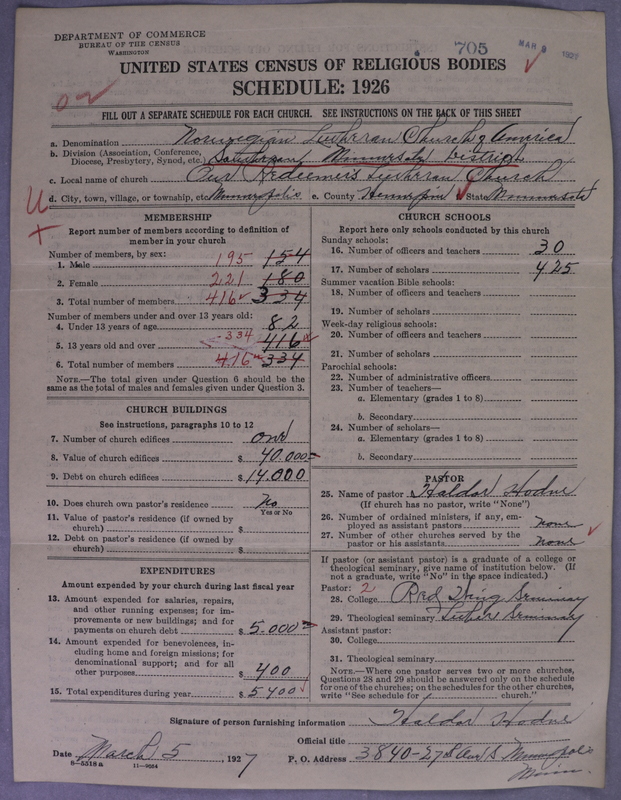 DEPARTMENT OF COMMERCE
BUREAU OF THE CENSUS
WASHINGTON
705
MAR
UNITED STATES CENSUS OF RELIGIOUS BODIES
SCHEDULE: 1926
FILL OUT A SEPARATE SCHEDULE FOR EACH CHURCH. SEE INSTRUCTIONS ON THE BACK OF THIS SHEET
a. Denomination Norwegian Lutheran Church of America
b. Division (Association, Conference, Diocese, Presbytery, Synod, etc.) Southern Minnesota District
c. Local name of church Our Redeemer's Lutheran Church
d. City, town, village, or township, etc Minneapolis e. County Hennepin State Minnesota
MEMBERSHIP
Report number of members according to definition of member in your church
Number of members, by sex:
1. Male 195 154
2. Female 221 180
3. Total number of members 416 334
Number of members under and over 13 years old:
4. Under 13 years of age 82
5. 13 years old and over 334 416
6. Total number of members 416 334
NOTE.—The total given under Question 6 should be the same as the total of males and females given under Question 3.
CHURCH BUILDINGS
See instructions, paragraphs 10 to 12
7. Number of church edifices one
8. Value of church edifices $ 40.000=
9. Debt on church edifices $ 14.000
10. Does church own pastor's residence No
Yes or No
11. Value of pastor's residence (if owned by church) $
12. Debt on pastor's residence (if owned by church) $
EXPENDITURES
Amount expended by your church during last fiscal year
13. Amount expended for salaries, repairs, and other running expenses; for improvements or new buildings; and for payments on church debt $ 5.000=
14. Amount expended for benevolences, including home and foreign missions; for denominational support; and for all other purposes $ 400
15. Total expenditures during year $ 5400
CHURCH SCHOOLS
Report here only schools conducted by this church
Sunday schools:
16. Number of officers and teachers 30
17. Number of scholars 425
Summer vacation Bible schools:
18. Number of officers and teachers
19. Number of scholars
Week-day religious schools:
20. Number of officers and teachers
21. Number of scholars
Parochial schools:
22. Number of administrative officers
23. Number of teachers—
a. Elementary (grades 1 to 8)
b. Secondary
24. Number of scholars—
a. Elementary (grades 1 to 8)
b. Secondary
PASTOR
25. Name of pastor Haldor Hodne
(If church has no pastor, write "None")
26. Number of ordained ministers, if any, employed as assistant pastors none
27. Number of other churches served by the pastor or his assistants none
If pastor (or assistant pastor) is a graduate of a college or theological seminary, give name of institution below. (If not a graduate, write "No" in the space indicated.)
Pastor: 2
28. College Red Wing Seminary
29. Theological seminary Luther Seminary
Assistant pastor:
30. College
31. Theological seminary
NOTE.—Where one pastor serves two or more churches, Questions 28 and 29 should be answered only on the schedule for one of the churches; on the schedules for the other churches, write "See schedule for church."
Signature of person furnishing information Haldor Hodne
Official title
Date March 5, 1927
P. O. Address 3840-27th Ave S. Minneapolis
Minn.
8—5518a 11—9034